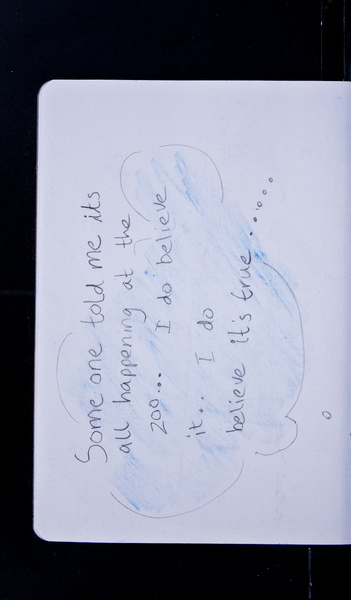 Some one told me its
all happening at the
200... I do believe
it.. I do
believe it's true......